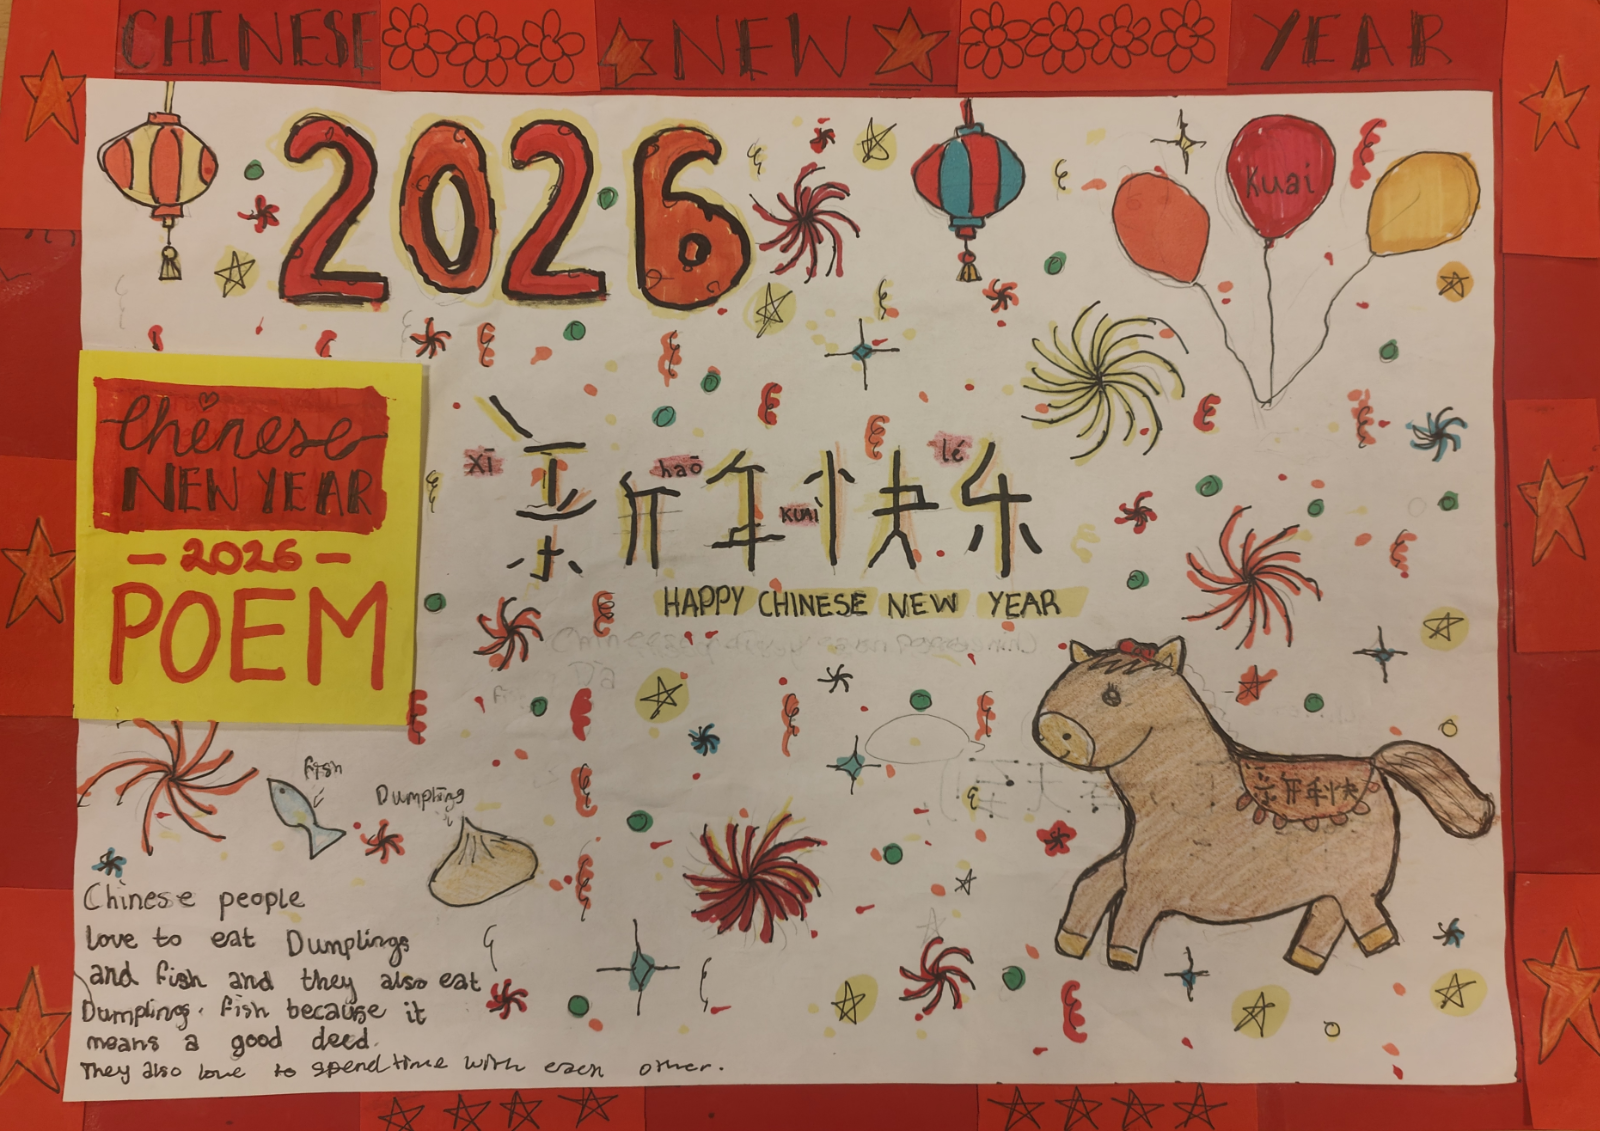 CHINESE NEW YEAR
2026
Kuai
Chinese
NEW YEAR
- 2026 -
POEM
xī haō kuai lé
新年快乐
HAPPY CHINESE NEW YEAR
新年快
fish
Dumpling
Chinese people
love to eat Dumplings
and fish and they also eat
Dumplings. fish because it
means a good deed.
They also love to spend time with each other.